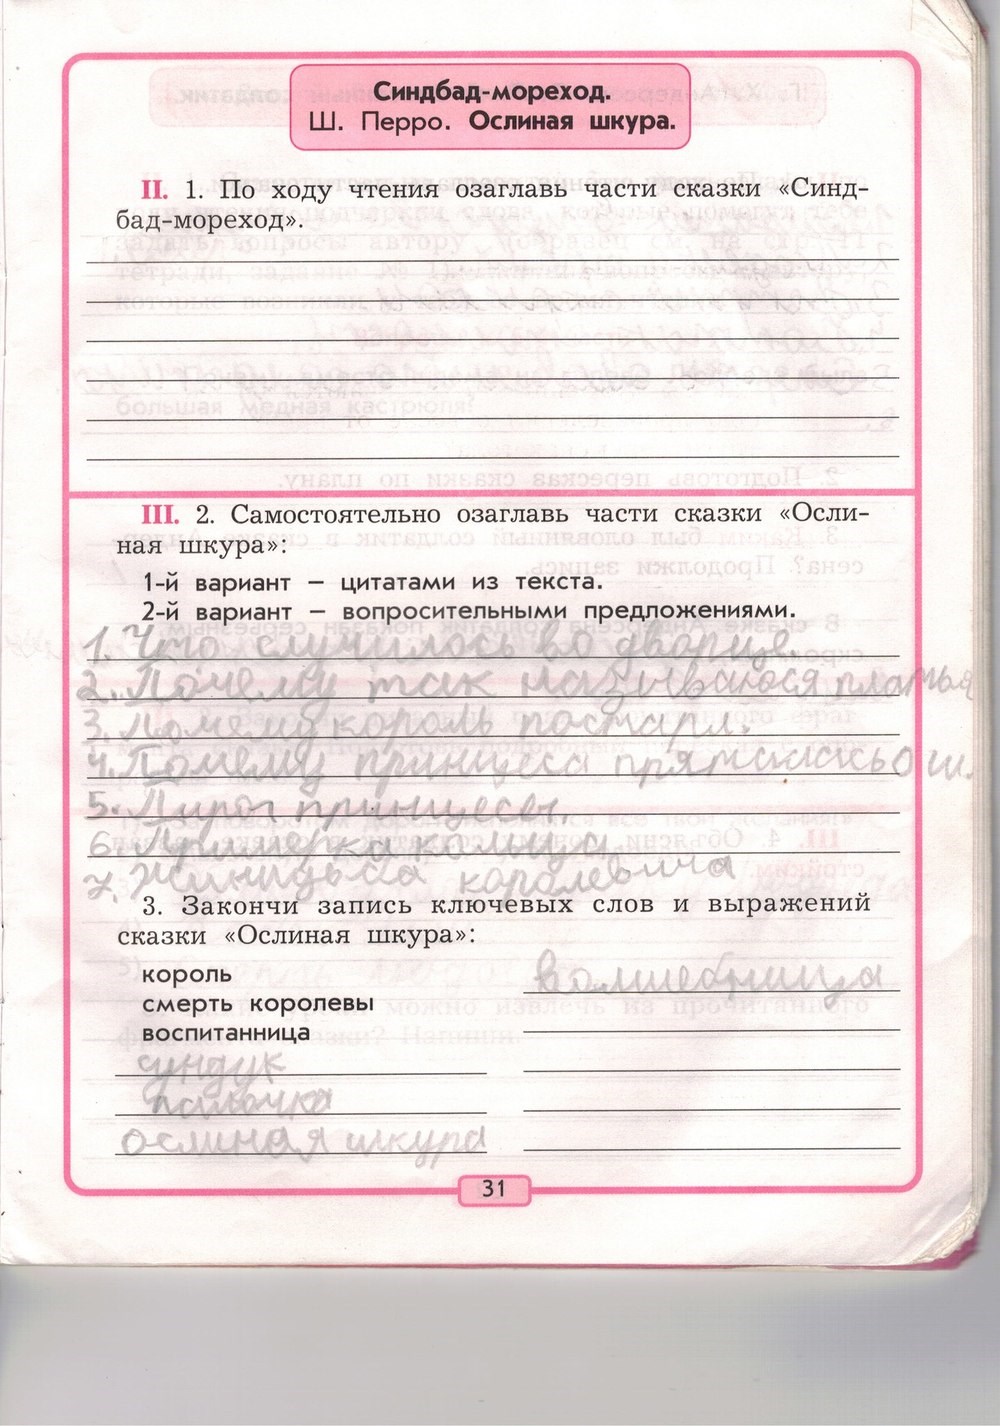 Синдбад-мореход.
Ш. Перро. Ослиная шкура.
II. 1. По ходу чтения озаглавь части сказки «Синд-
бад-мореход».
III. 2. Самостоятельно озаглавь части сказки «Осли-
ная шкура»:
1-й вариант – цитатами из текста.
2-й вариант – вопросительными предложениями.
1. Что случилось во дворце.
2. Почему так называюся платья
3. Почему король постарл.
4. Почему принцеса пряталась о ш.
5. Пиры принцесы.
6. Примерка кольца
7. Жиницьба королевича
3. Закончи запись ключевых слов и выражений
сказки «Ослиная шкура»:
король
волшебница
смерть королевы
воспитанница
сундук
палочка
ослиная шкура
31